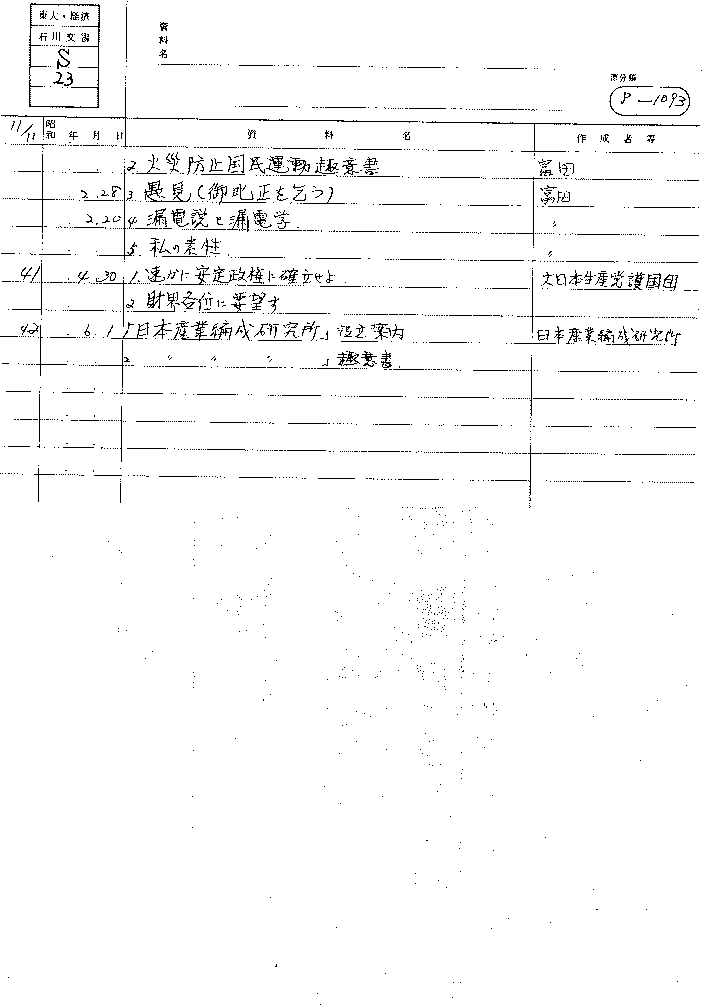 東大・経済
石川文書
S
23
資料名
原分類
P-1093
11/11 昭和 年 月 日 資料名 作成者等
2 火災防止国民運動趣意書 富田
2.28 3 愚見(御叱正を乞う) 富田
2.20 4 漏電説と漏電学 〃
5 私の素性 〃
41 4.30 1. 速かに安定政権を確立せよ 大日本生産党護国団
2 財界各位に要望す
42 6.1 1「日本産業編成研究所」設立案内 日本産業編成研究所
2 〃 〃 〃 」趣意書